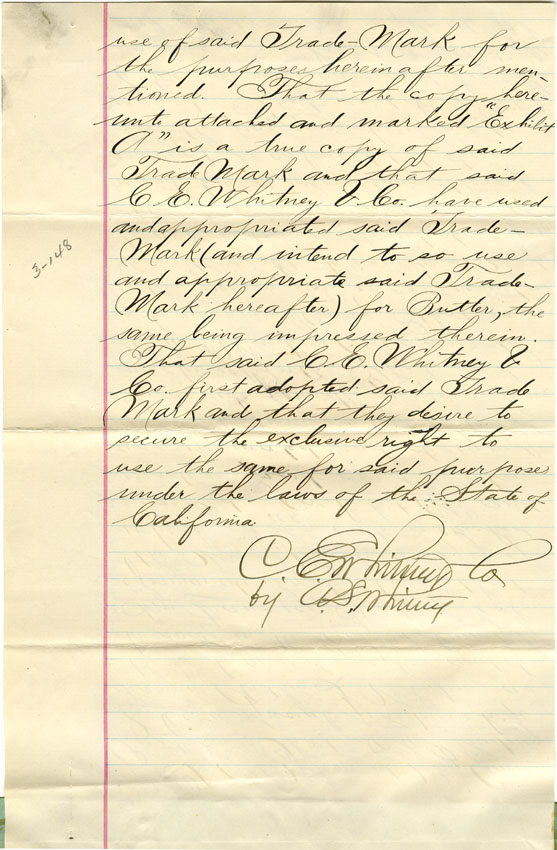 use of said Trade-Mark for
the purposes hereinafter men-
tioned. That the copy here-
unto attached and marked "Exhibit
A" is a true copy of said
Trade Mark and that said
C. E. Whitney & Co. have used
and appropriated said Trade-
Mark (and intend to so use
and appropriate said Trade-
Mark hereafter) for Butter, the
same being impressed therein.
That said C. E. Whitney &
Co. first adopted said Trade
Mark and that they desire to
secure the exclusive right to
use the same for said purposes
under the laws of the State of
California
C E Whitney Co
by Whitney
3-148